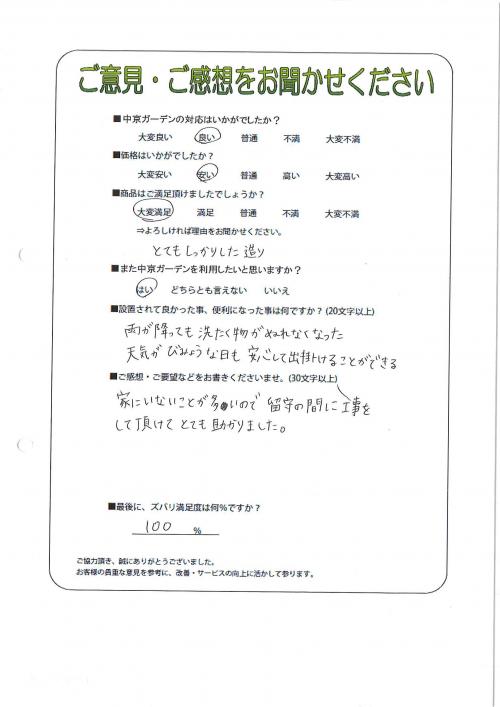 ご意見・ご感想をお聞かせください
■中京ガーデンの対応はいかがでしたか？
大変良い 良い 普通 不満 大変不満
■価格はいかがでしたか？
大変安い 安い 普通 高い 大変高い
■商品はご満足頂けましたでしょうか？
大変満足 満足 普通 不満 大変不満
⇒よろしければ理由をお聞かせください。
とてもしっかりした造り
■また中京ガーデンを利用したいと思いますか？
はい どちらとも言えない いいえ
■設置されて良かった事、便利になった事は何ですか？(20文字以上)
雨が降っても洗たく物がぬれなくなった
天気がびみょうな日も安心して出掛けることができる
■ご感想・ご要望などをお書きくださいませ。(30文字以上)
家にいないことが多いので留守の間に工事を
して頂けてとても助かりました。
■最後に、ズバリ満足度は何%ですか？
100 %
ご協力頂き、誠にありがとうございました。
お客様の貴重な意見を参考に、改善・サービスの向上に活かして参ります。